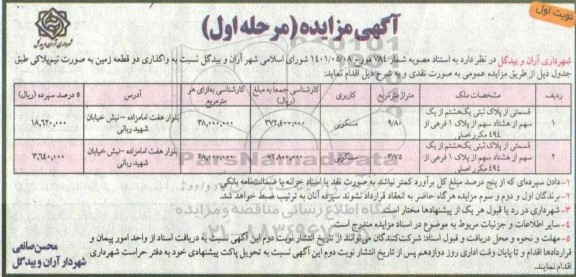 نوبت اول
آگهی مزایده (مرحله اول)
شهرداری آران و بیدگل
شهرداری آران و بیدگل در نظر دارد به استناد مصوبه شماره ۷۸۴ مورخ ۱۴۰۱/۰۵/۰۸ شورای اسلامی شهر آران و بیدگل نسبت به واگذاری دو قطعه زمین به صورت نیم‌پلاکی طبق
جدول ذیل از طریق مزایده عمومی به صورت نقدی و به شرح ذیل اقدام نماید:
ردیف مشخصات ملک متراژ مترمربع کاربری کارشناسی جمعا به مبلغ (ریال) کارشناسی به‌ازای هر مترمربع آدرس ۵ درصد سپرده (ریال)
۱ قسمتی از پلاک ثبتی یک‌هشتم از یک سهم از هشتاد سهم از پلاک ۱ فرعی از ۴۹۴ مکرر اصلی ۹/۸۰ مسکونی ۳۷۲,۴۰۰,۰۰۰ ۳۸,۰۰۰,۰۰۰ بلوار هفت امامزاده – نبش خیابان شهید ربانی ۱۸,۶۲۰,۰۰۰
۲ قسمتی از پلاک ثبتی یک‌هشتم از یک سهم از هشتاد سهم از پلاک ۱ فرعی از ۴۹۴ مکرر اصلی مسکونی ۷۲,۸۰۰,۰۰۰ بلوار هفت امامزاده – نبش خیابان شهید ربانی ۳,۶۴۰,۰۰۰
۱-دادن سپرده‌ای که از پنج درصد مبلغ کل برآورد کمتر نباشد به صورت نقد یا اسناد خزانه یا ضمانت‌نامه بانکی.
۲- برندگان اول و دوم و سوم مزایده هرگاه حاضر به انعقاد قرارداد نشوند سپرده آنان به ترتیب ضبط خواهد شد.
۳- شهرداری در رد یا قبول هر یک از پیشنهادها مختار است.
۴- سایر اطلاعات و جزئیات مربوط به موضوع در اسناد مزایده مندرج است.
۵- مهلت و نحوه و محل دریافت و قبول اسناد: شرکت‌کنندگان می‌توانند از تاریخ انتشار نوبت دوم این آگهی نسبت به دریافت اسناد از واحد امور پیمان و
قراردادها اقدام و تا پایان وقت اداری روز دوازدهم پس از تاریخ انتشار نوبت دوم این آگهی نسبت به تحویل پاکت پیشنهادی خود به دفتر حراست شهرداری
اقدام نمایند.
محسن صانعی
شهردار آران و بیدگل